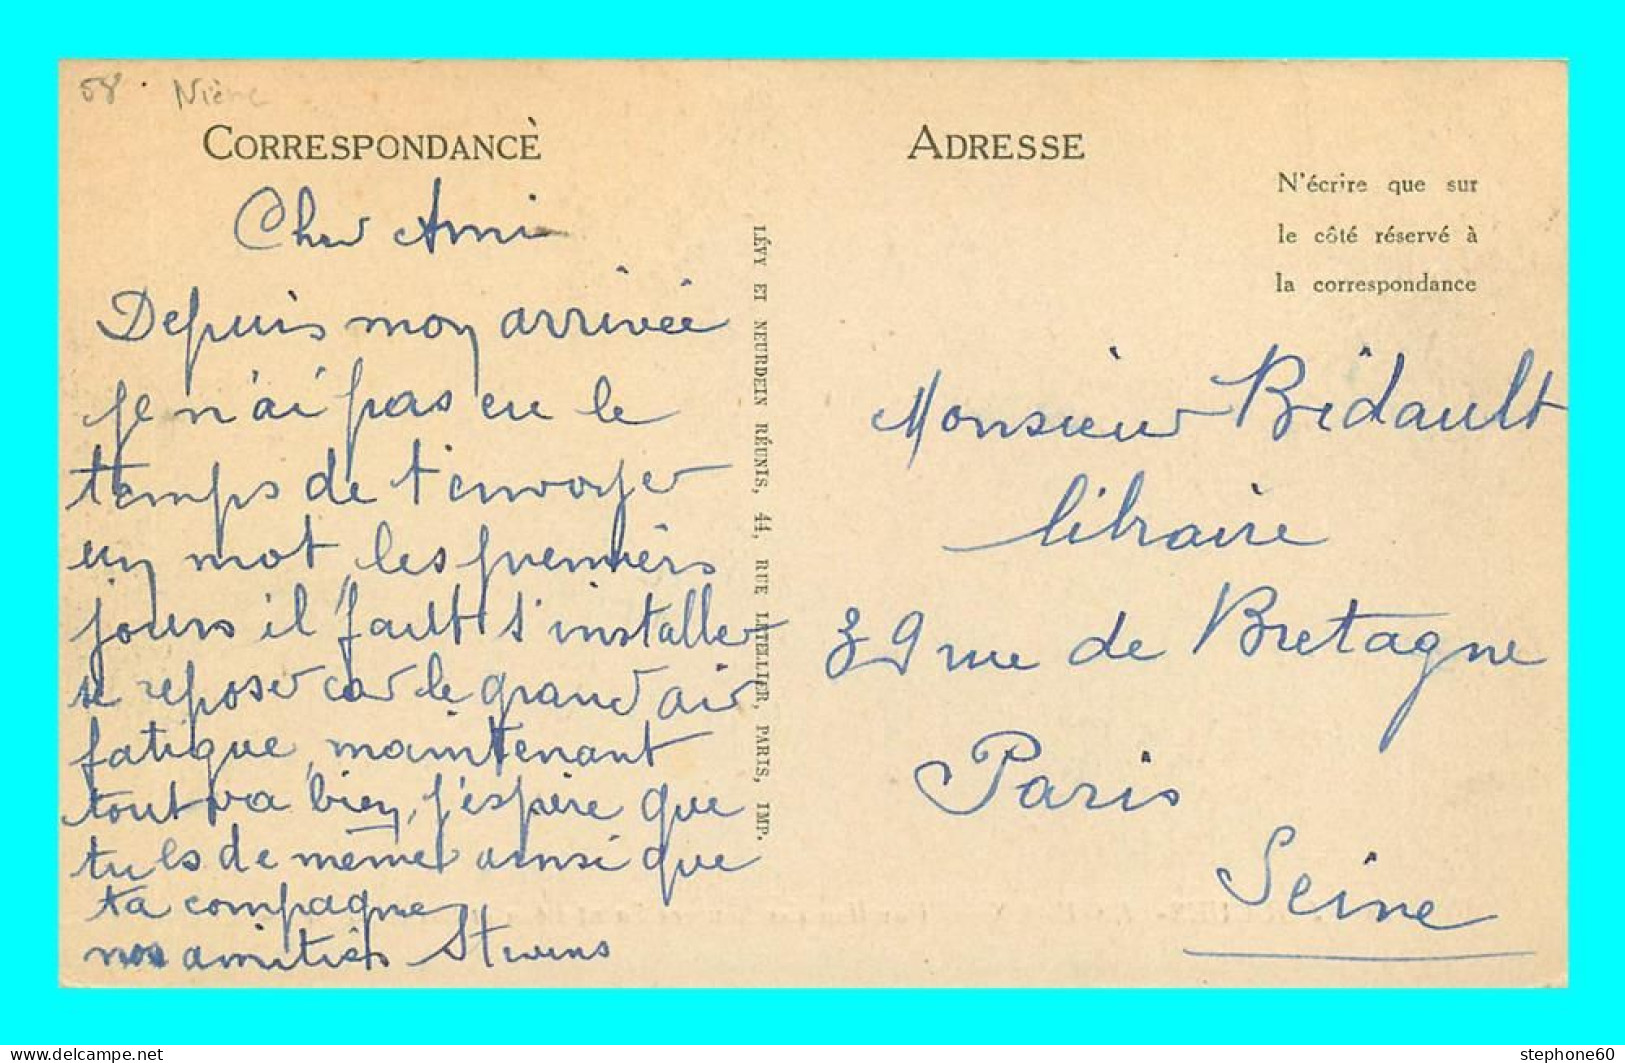 58 Nièvre
CORRESPONDANCE
Cher Ami
Depuis mon arrivée
je n'ai pas eu le
temps de t'envoyer
un mot, les premiers
jours il fault s'installer
se reposer car le grand air
fatigue, maintenant
tout va bien, j'espère que
tu es de même ainsi que
ta compagne
nos amitiés
LÉVY ET NEURDEIN RÉUNIS, 44, RUE LETELLIER, PARIS, IMP.
ADRESSE
N'écrire que sur
le côté réservé à
la correspondance
Monsieur Bidault
libraire
39 rue de Bretagne
Paris
Seine
stephone60